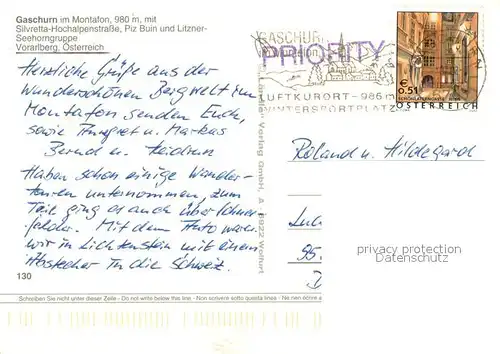 Gaschurn im Montafon, 980 m, mit
Silvretta-Hochalpenstraße, Piz Buin und Litzner-
Seehorngruppe
Vorarlberg, Österreich
Herzliche Grüße aus der
wunderschönen Bergwelt im
Montafon senden Euch,
sowie Annegret u. Markus
Bernd u. Heidrun
Haben schon einige Wander-
touren unternommen, zum
Teil ging es auch über Schnee-
felder. Mit dem Auto waren
wir in Lichtenstein mit einem
Abstecher in die Schweiz.
130
Schreiben Sie nicht unter dieser Zeile - Do not write below this line - Non scrivere sotto questa linea - Ne rien écrire
Verlag GmbH, A 6922 Wolfurt
GASCHURN
im Montafon
PRIORITY
LUFTKURORT - 986 m
WINTERSPORTPLATZ
€ 0,51
ÖSTERREICH
Roland u. Hildegard
95
privacy protection
Datenschutz